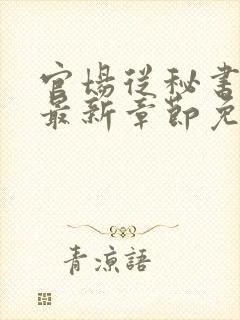 官場從秘書
最新章節免
青涼語